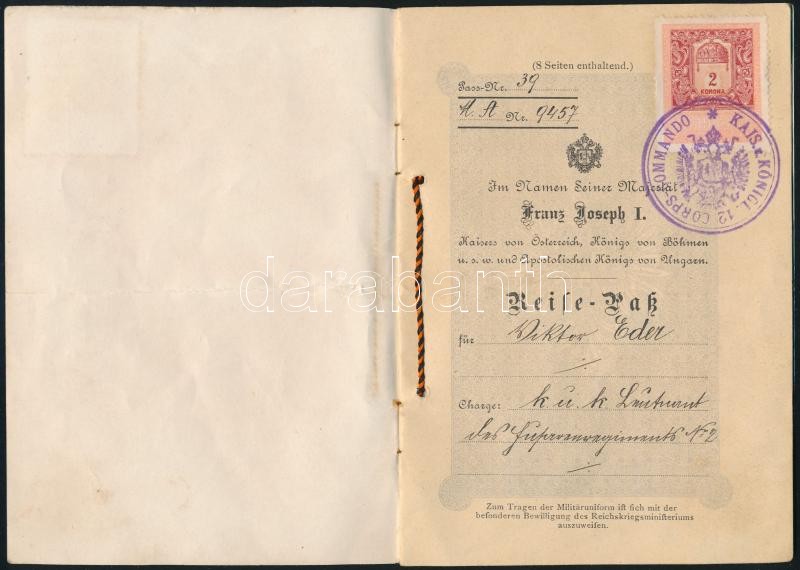 (8 Seiten enthaltend.)
Pass-Nr. 39
K. A Nr. 9457
2
KORONA
KAIS. u. KÖNIGL. 12. CORPSCOMMANDO *
Im Namen Seiner Majestät
Franz Joseph I.
Kaisers von Österreich, Königs von Böhmen
u. s. w. und Apostolischen Königs von Ungarn.
darabanth
Reise-Paß
für Viktor Eder
Charge: k. u. k. Leutnant
des Husarenregiments Nr. 2
Zum Tragen der Militäruniform ist sich mit der
besonderen Bewilligung des Reichskriegsministeriums
auszuweisen.